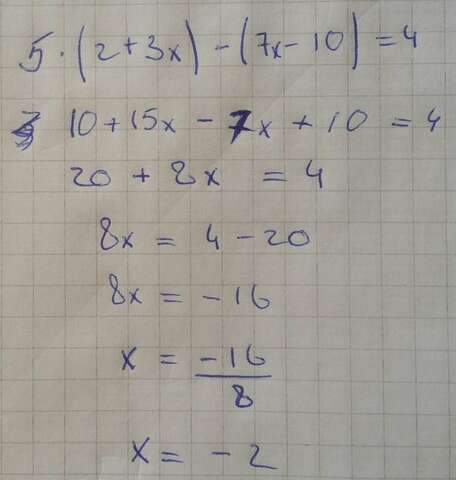 5·(2+3x)-(7x-10)=4
10+15x-7x+10=4
20+8x=4
8x=4-20
8x=-16
x=-16/8
x=-2